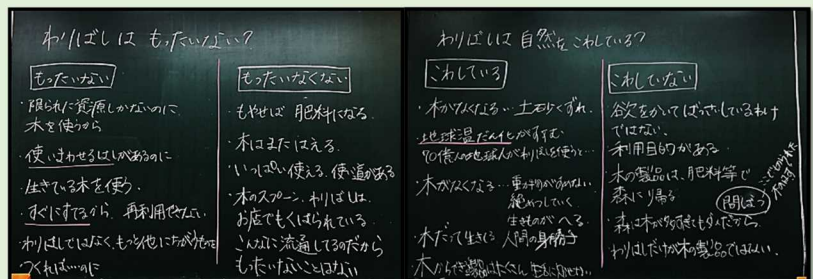 わりばしは もったいない?
もったいない
・限られた資源しかないのに
木を使うから
使いまわせるはしがあるのに
・生きている木を使う。
・すぐにすてるから 再利用できない。
わりばしではなく、もっと他に
つくれば…のに
もったいなくない
・もやせば 肥料になる。
・木はまたはえる。
・いっぱい使える。使い道がある
・木のスプーン、わりばしは、
お店でもくばられている
こんなに流通してるのだから
もったいないことはない
わりばしは 自然をこわしている?
こわしている
・木がなくなる…土砂くずれ。
・地球温だん化がすすむ
億人の地球人がわりばしを使うと…
・木がなくなる…
絶めつしていく
生きものがへる。
・木だって生きてる 人間の身勝手
こわしていない
欲をかいてばっさいしているわけ
ではない。
利用目的がある
木の製品は、肥料等で
森に帰る
間ばつ
・森は木が多すぎてもダメだから。
わりばしだけが木の製品ではない。